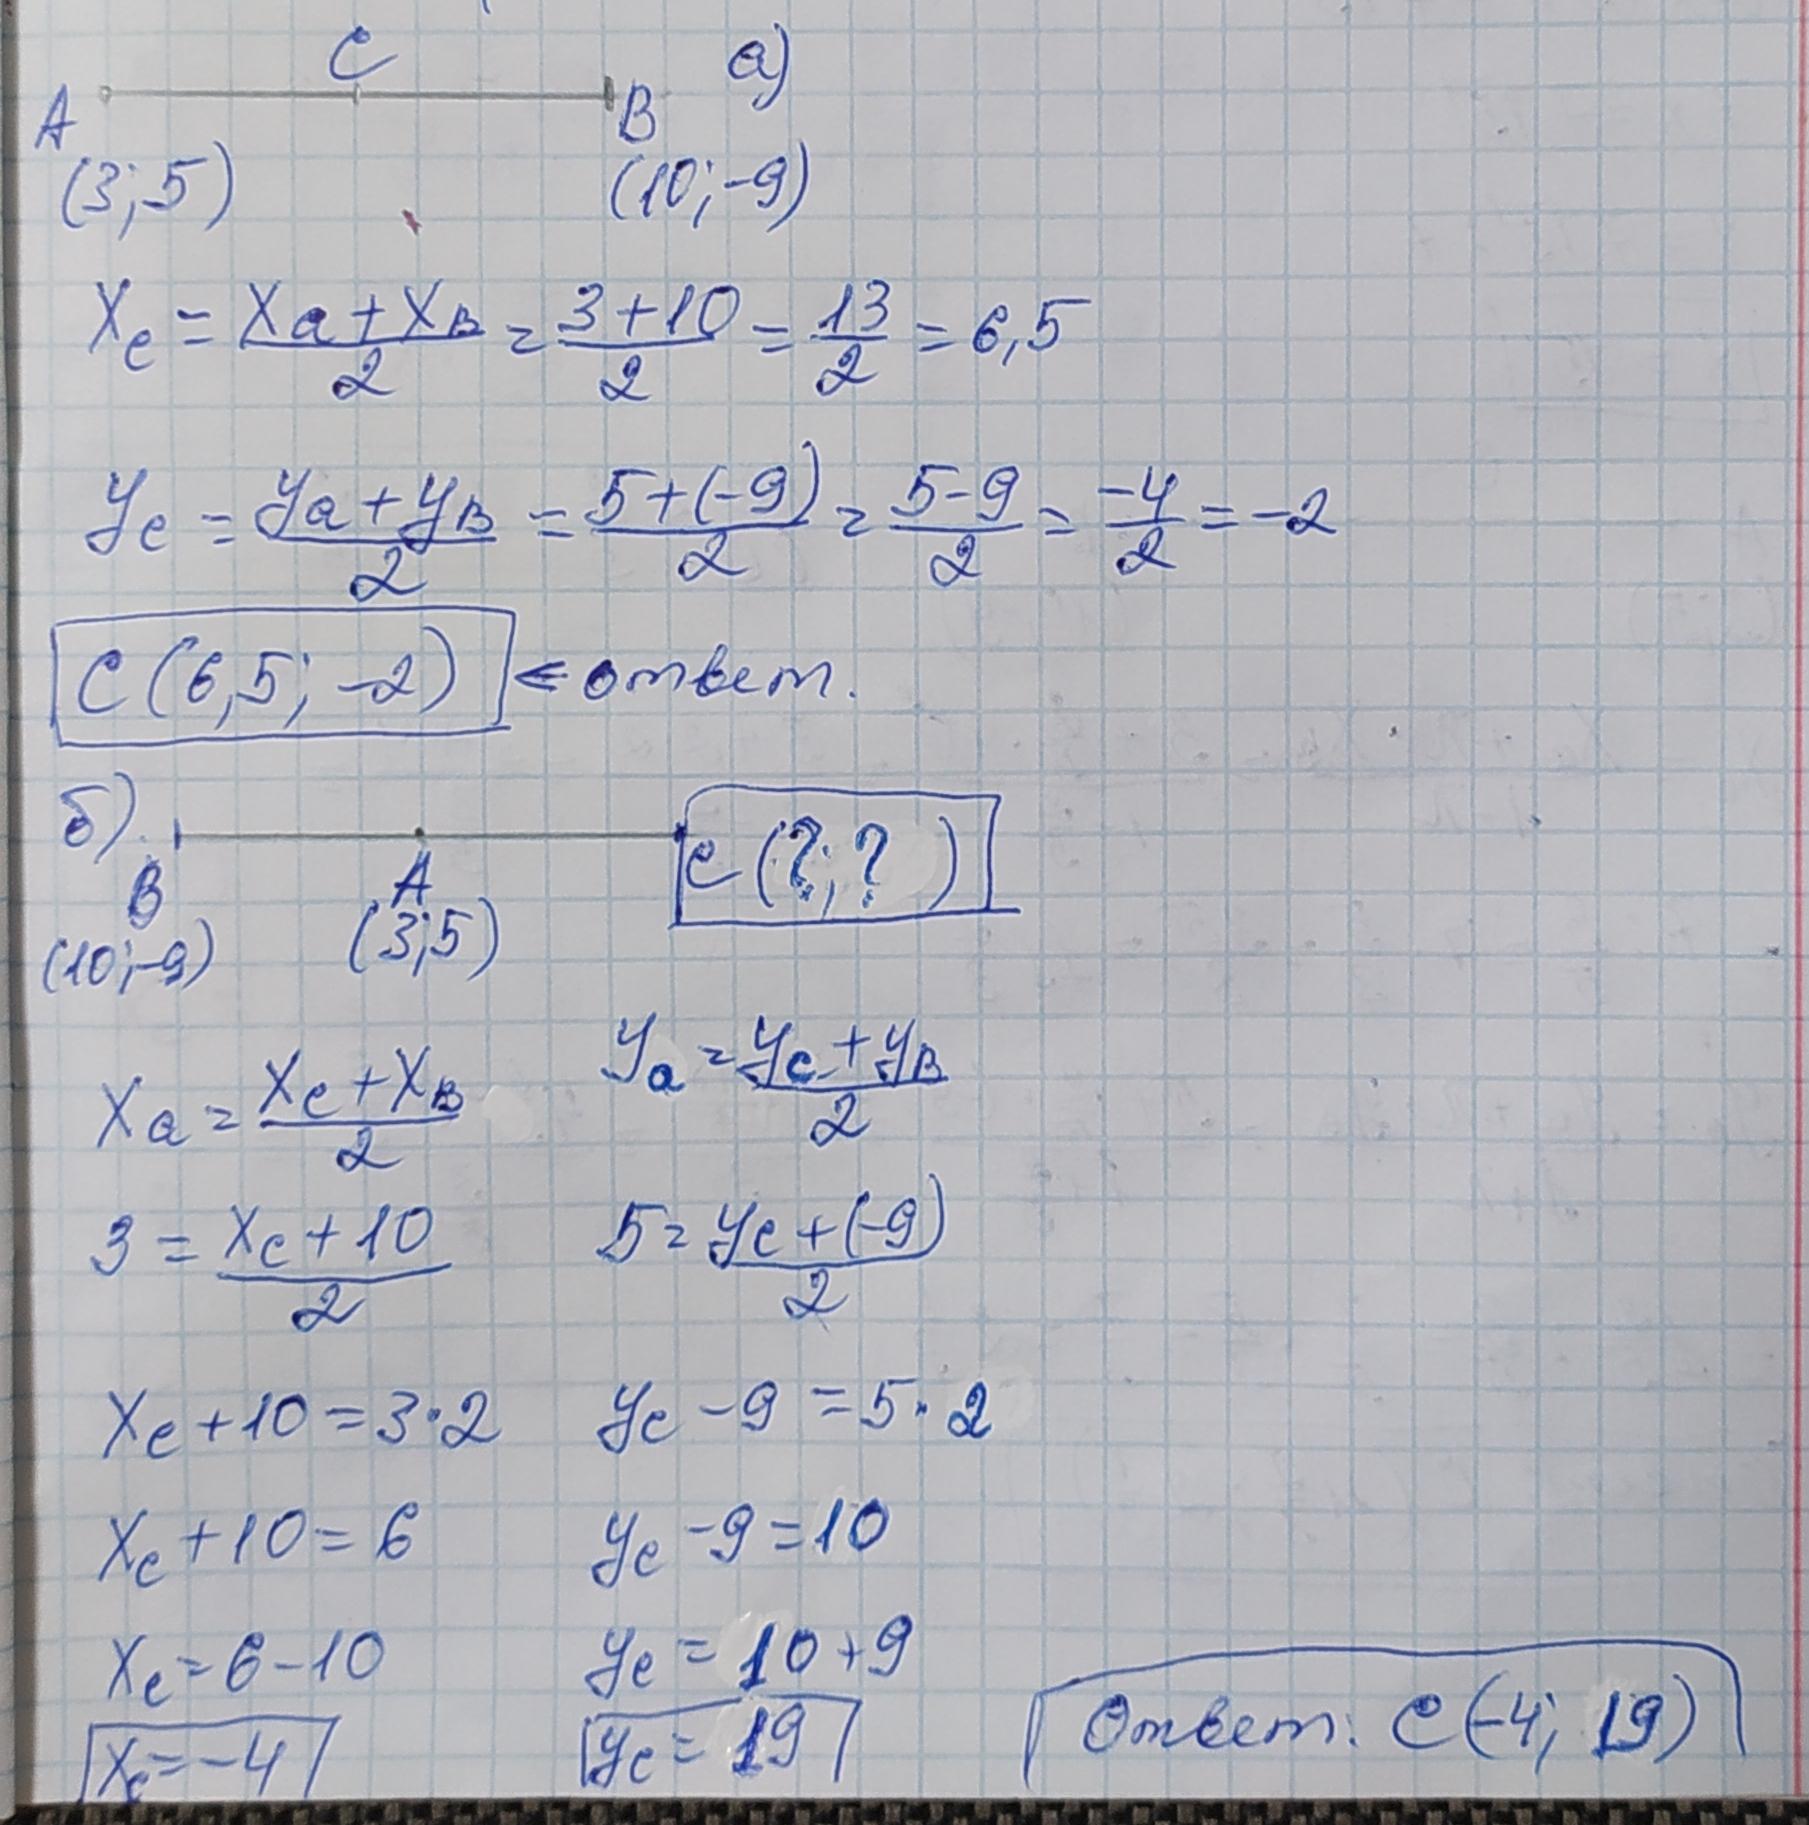 C а)
A B
(3; 5) (10; -9)
Xc = (Xa + XB)/2 = (3 + 10)/2 = 13/2 = 6,5
Yc = (Ya + YB)/2 = (5 + (-9))/2 = (5 - 9)/2 = -4/2 = -2
C (6,5; -2) ⇐ ответ.
б) C (?; ?)
B A
(10; -9) (3; 5)
Xa = (Xc + XB)/2 Ya = (Yc + YB)/2
3 = (Xc + 10)/2 5 = (Yc + (-9))/2
Xc + 10 = 3·2 Yc - 9 = 5·2
Xc + 10 = 6 Yc - 9 = 10
Xc = 6 - 10 Yc = 10 + 9
Xc = -4 Yc = 19 Ответ: C (-4; 19)